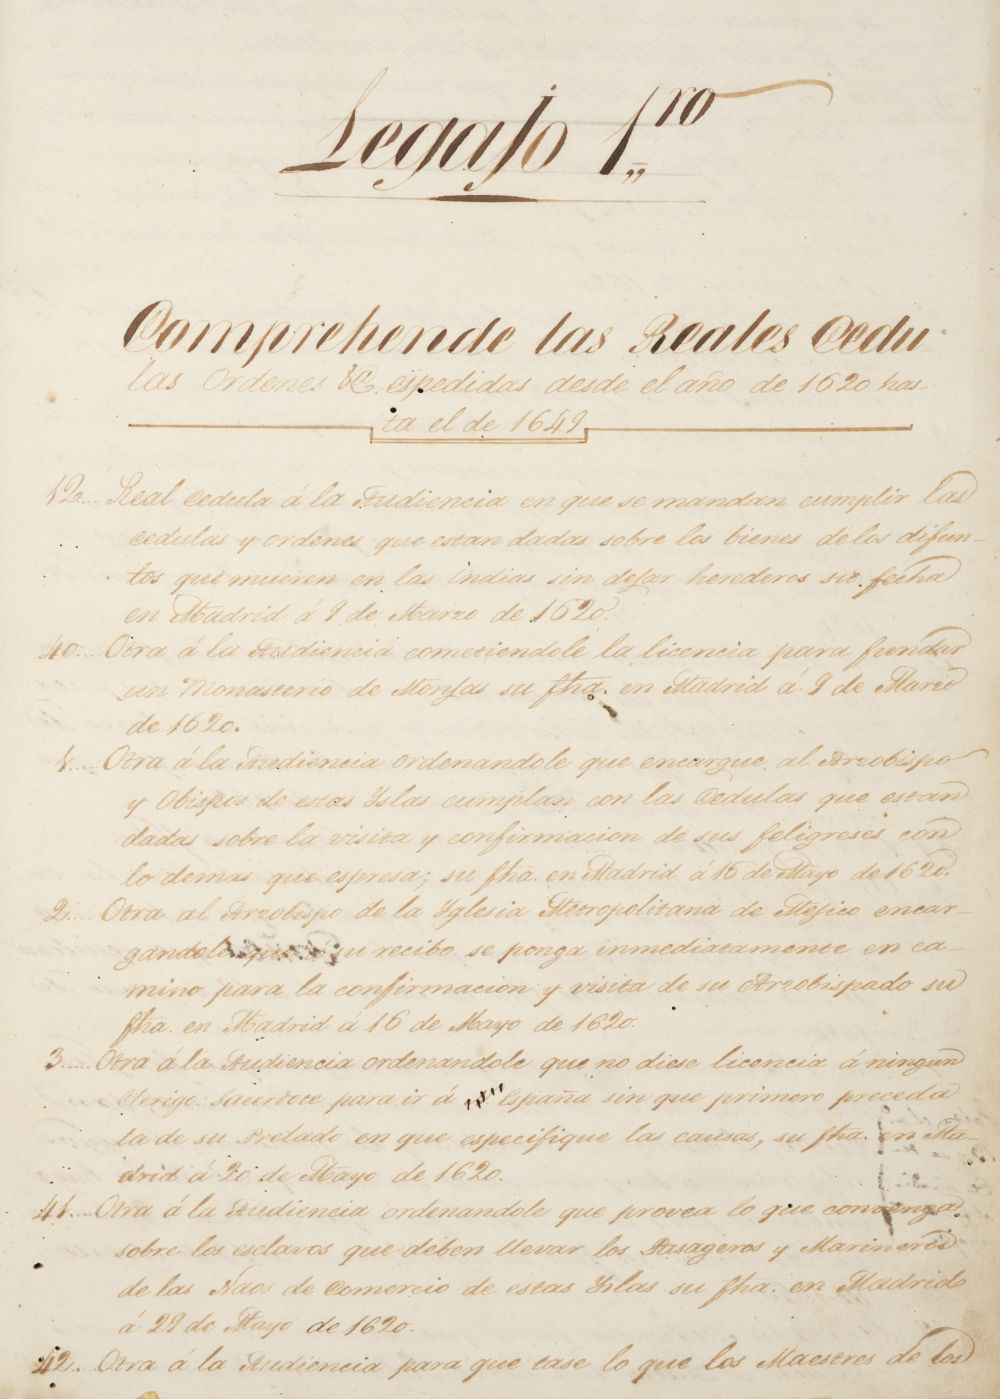 Legajo 1,,ro
Comprehende las Reales Cedu
las Ordenes &c. espedidas desde el año de 1620 has-
ta el de 1649
12.... Real Cedula á la Audiencia en que se mandan cumplir las
cedulas y ordenes que estan dadas sobre los bienes de los difun-
tos que mueren en las indias sin dejar herederos su fecha
en Madrid á 9 de Marzo de 1620.
40.... Otra á la Audiencia cometiendole la licencia para fundar
un Monasterio de Monjas su fha. en Madrid á 9 de Marzo
de 1620.
1.... Otra á la Audiencia ordenandole que encargue al Arzobispo
y Obispos de estas Yslas cumplan con las Cedulas que estan
dadas sobre la visita y confirmacion de sus feligreses con
lo demas que espresa; su fha. en Madrid á 16 de Mayo de 1620.
2.... Otra al Arzobispo de la Yglesia Metropolitana de Mejico encar-
gandole que á su recibo se ponga inmediatamente en ca-
mino para la confirmacion y visita de su Arzobispado su
fha. en Madrid á 16 de Mayo de 1620.
3.... Otra á la Audiencia ordenandole que no diese licencia á ningun
Clerigo Sacerdote para ir á España sin que primero preceda
la de su Prelado en que especifique las causas, su fha. en Ma-
drid á 20 de Mayo de 1620.
41.... Otra á la Audiencia ordenandole que provea lo que convenga
sobre los esclavos que deben llevar los Pasageros y Marineros
de las Naos de Comercio de estas Yslas su fha. en Madrid
á 29 de Mayo de 1620.
42. Otra á la Audiencia para que tase lo que los Maestres de los